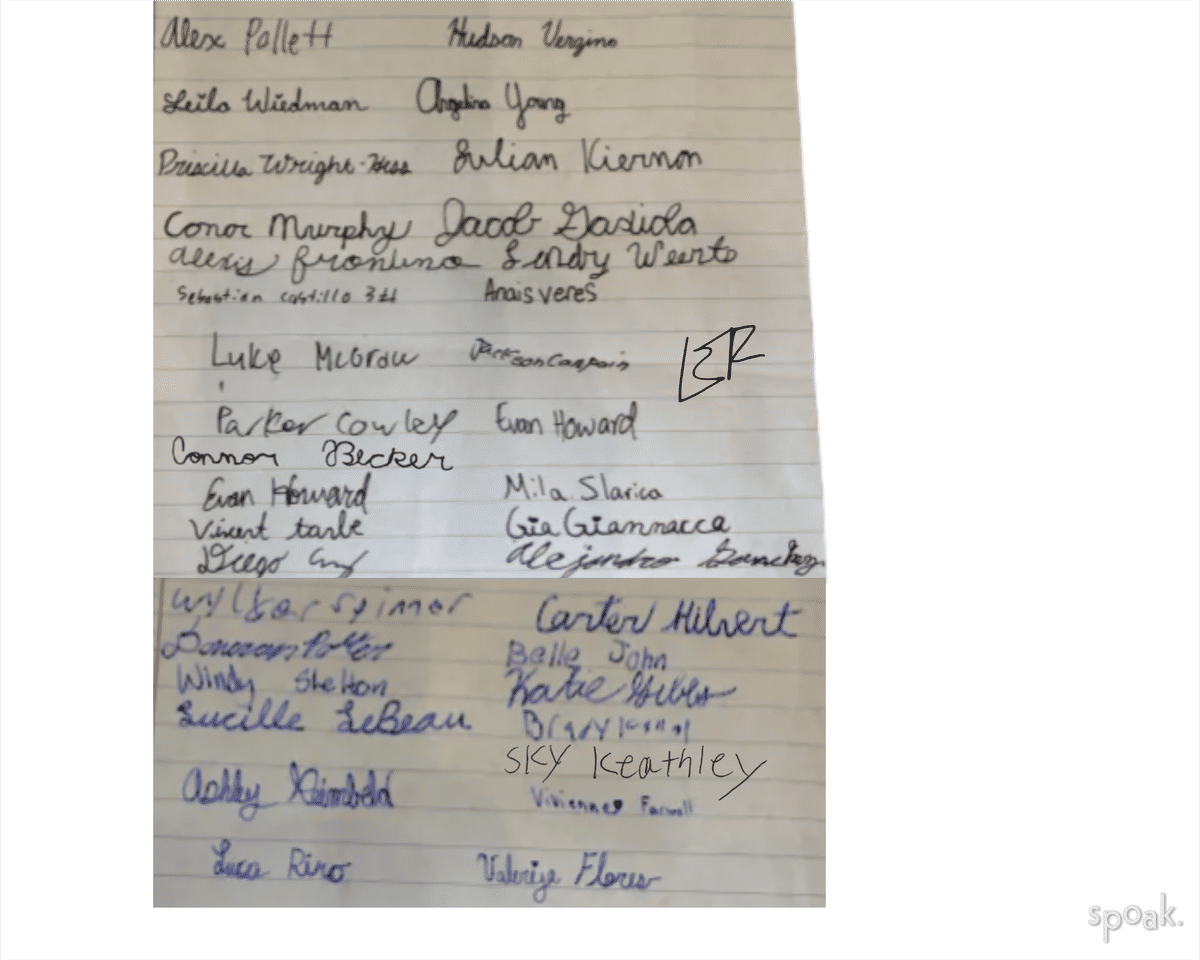 Alex Pollett Hudson Vergino
Leila Wiedman Angelina Young
Priscilla Wright-Hess Julian Kiernon
Conor Murphy Jacob Gasiola
Alexis Frontino Lendry Weerts
Sebastian Castillo 3rd Anais Veres
Luke McGraw Jackson Campain
LER
Parker Cowley Evan Howard
Connor Becker
Evan Howard Mila Slarica
Vincent tarle Gia Giannacca
Diego Alejandro Sanchez
Wylker Spinner Carter Hilvert
Donovan Potter Belle John
Windy Shelton Katie Gibbs
Lucille LeBeau Brady
SKY Keathley
Ashley Reimbold Vivienne Farwell
Luca Riro Valeriye Flores
spoak.